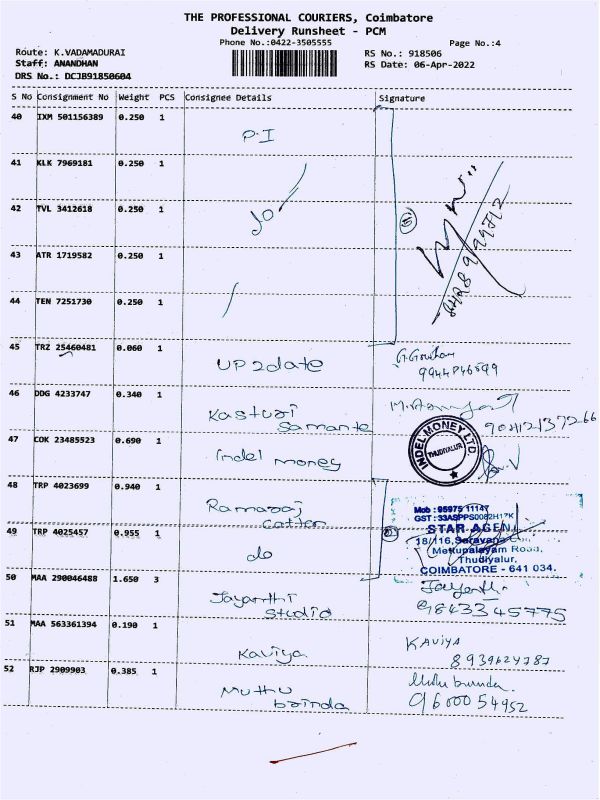 THE PROFESSIONAL COURIERS, Coimbatore
Delivery Runsheet - PCM
Phone No.:0422-3505555
Page No.:4
Route: K.VADAMADURAI
RS No.: 918506
Staff: ANANDHAN
RS Date: 06-Apr-2022
DRS No.: DCJB91850604
S No Consignment No Weight PCS Consignee Details Signature
40 IXM 501156389 0.250 1
P.I
41 KLK 7969181 0.250 1
42 TVL 3412618 0.250 1
do
43 ATR 1719582 0.250 1
44 TEN 7251730 0.250 1
45 TRZ 25460481 0.060 1
UP2date
46 DDG 4233747 0.340 1
Kasturi
Samante
47 COK 23485523 0.690 1
indel money
INDEL MONEY LTD.
THUDIYALUR
48 TRP 4023699 0.940 1
Ramaraj
Cotton
Mob : 95975 11147
STAR AGEN
49 TRP 4025457 0.955 1
do
18/116, Saravana
Mettupalayam Road,
Thudiyalur,
COIMBATORE - 641 034.
50 MAA 290046488 1.650 3
Jayanthi
Studio
Jayanthi
9843345775
51 MAA 563361394 0.190 1
Kaviya
Kaviya
8939624787
52 RJP 2909903 0.385 1
Muthu
brinda
9600054952